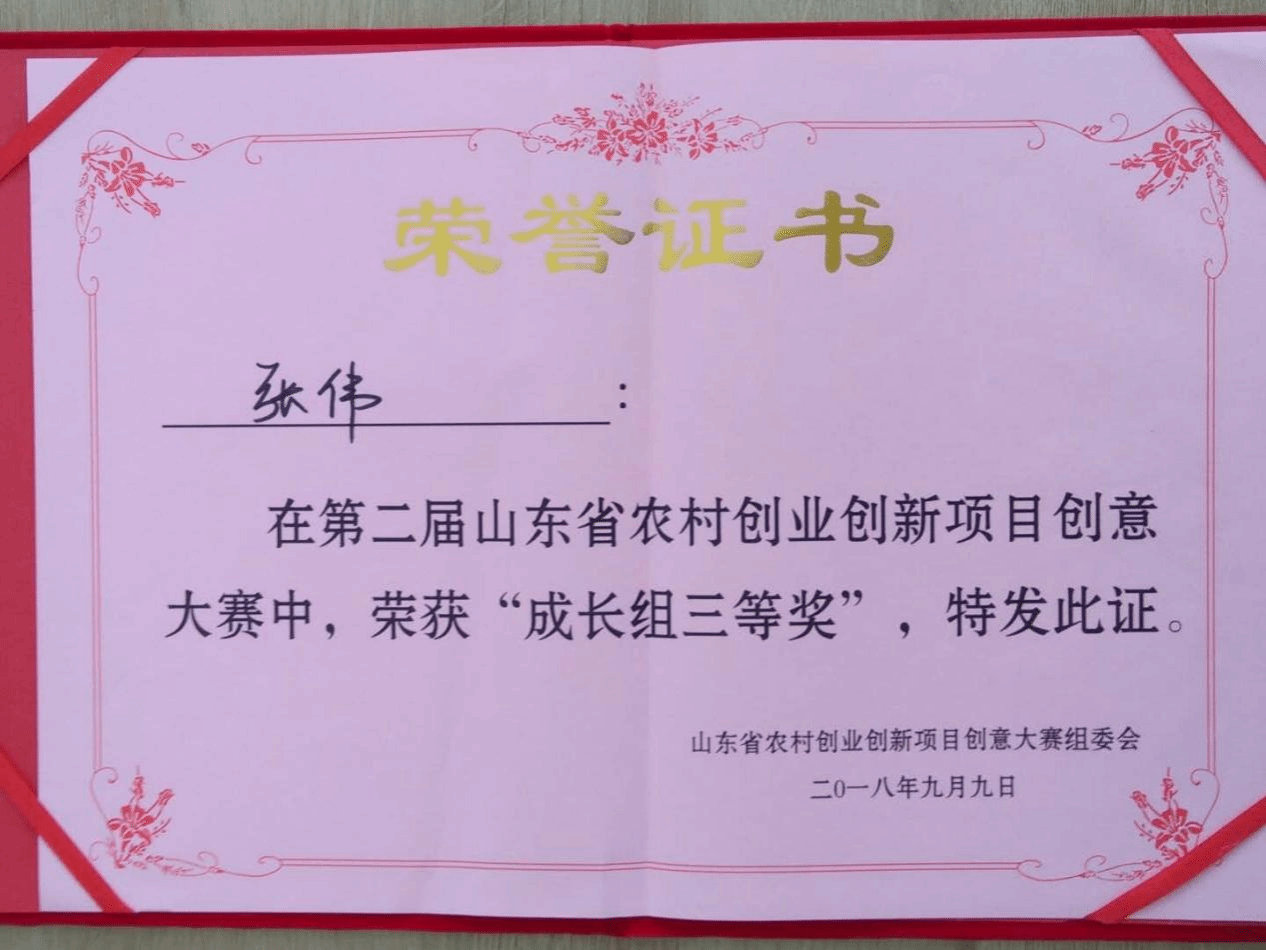 荣誉证书
张伟：
在第二届山东省农村创业创新项目创意
大赛中，荣获“成长组三等奖”，特发此证。
山东省农村创业创新项目创意大赛组委会
二0一八年九月九日